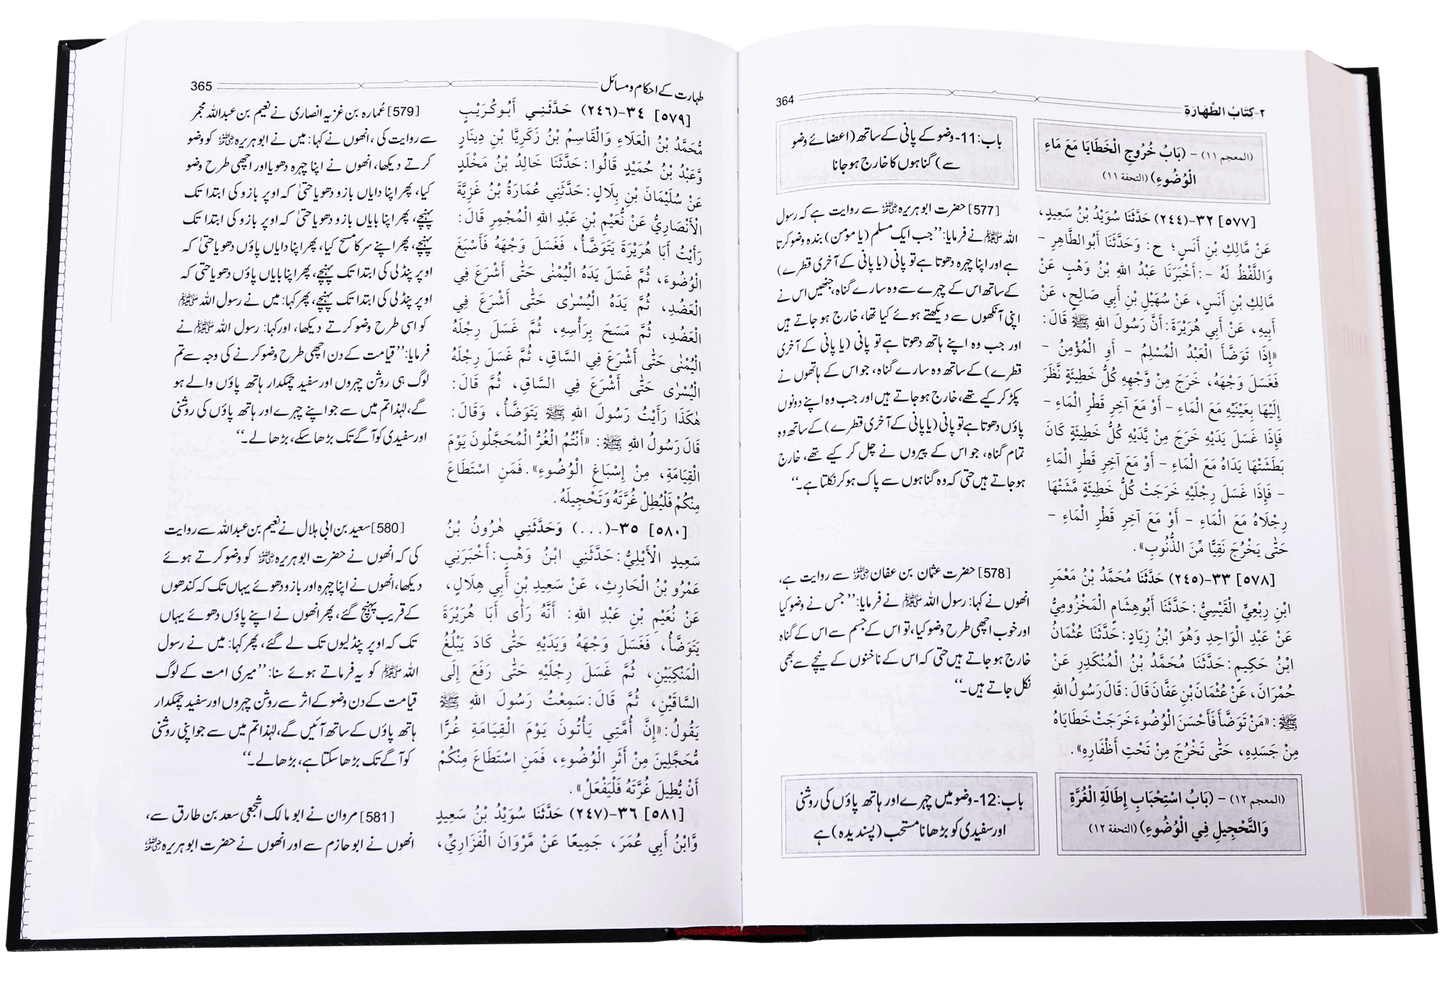 ٢-كتاب الطهارة
364
(المعجم ١١) - (بَابُ خُرُوجِ الْخَطَايَا مَعَ مَاءِ
الْوُضُوءِ) (التحفة ١١)
باب:11-وضو کے پانی کے ساتھ (اعضائے وضو
سے) گناہوں کا خارج ہو جانا
[٥٧٧] ٣٢-(٢٤٤) حَدَّثَنَا سُوَيْدُ بْنُ سَعِيدٍ،
عَنْ مَّالِكِ بْنِ أَنَسٍ؛ ح: وَحَدَّثَنَا أَبُوالطَّاهِرِ -
وَاللَّفْظُ لَهُ -: أَخْبَرَنَا عَبْدُ اللهِ بْنُ وَهْبٍ عَنْ
مَّالِكِ بْنِ أَنَسٍ، عَنْ سُهَيْلِ بْنِ أَبِي صَالِحٍ، عَنْ
أَبِيهِ، عَنْ أَبِي هُرَيْرَةَ: أَنَّ رَسُولَ اللهِ ﷺ قَالَ:
«إِذَا تَوَضَّأَ الْعَبْدُ الْمُسْلِمُ - أَوِ الْمُؤْمِنُ -
فَغَسَلَ وَجْهَهُ، خَرَجَ مِنْ وَّجْهِهِ كُلُّ خَطِيئَةٍ نَّظَرَ
إِلَيْهَا بِعَيْنَيْهِ مَعَ الْمَاءِ - أَوْ مَعَ آخِرِ قَطْرِ الْمَاءِ -
فَإِذَا غَسَلَ يَدَيْهِ خَرَجَ مِنْ يَّدَيْهِ كُلُّ خَطِيئَةٍ كَانَ
بَطَشَتْهَا يَدَاهُ مَعَ الْمَاءِ - أَوْ مَعَ آخِرِ قَطْرِ الْمَاءِ
- فَإِذَا غَسَلَ رِجْلَيْهِ خَرَجَتْ كُلُّ خَطِيئَةٍ مَّشَتْهَا
رِجْلَاهُ مَعَ الْمَاءِ - أَوْ مَعَ آخِرِ قَطْرِ الْمَاءِ -
حَتّٰى يَخْرُجَ نَقِيًّا مِّنَ الذُّنُوبِ».
[٥٧٨] ٣٣-(٢٤٥) حَدَّثَنَا مُحَمَّدُ بْنُ مَعْمَرِ
ابْنِ رِبْعِيٍّ الْقَيْسِيُّ: حَدَّثَنَا أَبُوهِشَامٍ الْمَخْزُومِيُّ
عَنْ عَبْدِ الْوَاحِدِ وَهُوَ ابْنُ زِيَادٍ: حَدَّثَنَا عُثْمَانُ
ابْنُ حَكِيمٍ: حَدَّثَنَا مُحَمَّدُ بْنُ الْمُنْكَدِرِ عَنْ
حُمْرَانَ، عَنْ عُثْمَانَ بْنِ عَفَّانَ قَالَ: قَالَ رَسُولُ اللهِ
ﷺ: «مَنْ تَوَضَّأَ فَأَحْسَنَ الْوُضُوءَ خَرَجَتْ خَطَايَاهُ
مِنْ جَسَدِهِ، حَتّٰى تَخْرُجَ مِنْ تَحْتِ أَظْفَارِهِ».
[577] حضرت ابو ہریرہ ؓ سے روایت ہے کہ رسول
اللہ ﷺ نے فرمایا: ’’جب ایک مسلم (یا مومن) بندہ وضو کرتا
ہے اور اپنا چہرہ دھوتا ہے تو پانی (یا پانی کے آخری قطرے)
کے ساتھ اس کے چہرے سے وہ سارے گناہ، جنھیں اس نے
اپنی آنکھوں سے دیکھتے ہوئے کیا تھا، خارج ہو جاتے ہیں
اور جب وہ اپنے ہاتھ دھوتا ہے تو پانی (یا پانی کے آخری
قطرے) کے ساتھ وہ سارے گناہ، جو اس کے ہاتھوں نے
پکڑ کر کیے تھے، خارج ہو جاتے ہیں اور جب وہ اپنے دونوں
پاؤں دھوتا ہے تو پانی (یا پانی کے آخری قطرے) کے ساتھ وہ
تمام گناہ، جو اس کے پیروں نے چل کر کیے تھے، خارج
ہو جاتے ہیں حتی کہ وہ گناہوں سے پاک ہو کر نکلتا ہے۔‘‘
[578] حضرت عثمان بن عفان ؓ سے روایت ہے،
انھوں نے کہا: رسول اللہ ﷺ نے فرمایا: ’’جس نے وضو کیا
اور خوب اچھی طرح وضو کیا، تو اس کے جسم سے اس کے گناہ
خارج ہو جاتے ہیں حتی کہ اس کے ناخنوں کے نیچے سے بھی
نکل جاتے ہیں۔‘‘
(المعجم ١٢) - (بَابُ اسْتِحْبَابِ إِطَالَةِ الْغُرَّةِ
وَالتَّحْجِيلِ فِي الْوُضُوءِ) (التحفة ١٢)
باب:12-وضو میں چہرے اور ہاتھ پاؤں کی روشنی
اور سفیدی کو بڑھانا مستحب (پسندیدہ) ہے
طہارت کے احکام و مسائل
365
[٥٧٩] ٣٤-(٢٤٦) حَدَّثَنِي أَبُوكُرَيْبٍ
مُحَمَّدُ بْنُ الْعَلَاءِ وَالْقَاسِمُ بْنُ زَكَرِيَّا بْنِ دِينَارٍ
وَّعَبْدُ بْنُ حُمَيْدٍ قَالُوا: حَدَّثَنَا خَالِدُ بْنُ مَخْلَدٍ
عَنْ سُلَيْمَانَ بْنِ بِلَالٍ: حَدَّثَنِي عُمَارَةُ بْنُ غَزِيَّةَ
الْأَنْصَارِيُّ عَنْ نُّعَيْمِ بْنِ عَبْدِ اللهِ الْمُجْمِرِ قَالَ:
رَأَيْتُ أَبَا هُرَيْرَةَ يَتَوَضَّأُ، فَغَسَلَ وَجْهَهُ فَأَسْبَغَ
الْوُضُوءَ، ثُمَّ غَسَلَ يَدَهُ الْيُمْنٰى حَتّٰى أَشْرَعَ فِي
الْعَضُدِ، ثُمَّ يَدَهُ الْيُسْرٰى حَتّٰى أَشْرَعَ فِي
الْعَضُدِ، ثُمَّ مَسَحَ بِرَأْسِهِ، ثُمَّ غَسَلَ رِجْلَهُ
الْيُمْنٰى حَتّٰى أَشْرَعَ فِي السَّاقِ، ثُمَّ غَسَلَ رِجْلَهُ
الْيُسْرٰى حَتّٰى أَشْرَعَ فِي السَّاقِ، ثُمَّ قَالَ:
هٰكَذَا رَأَيْتُ رَسُولَ اللهِ ﷺ يَتَوَضَّأُ، وَقَالَ:
قَالَ رَسُولُ اللهِ ﷺ: «أَنْتُمُ الْغُرُّ الْمُحَجَّلُونَ يَوْمَ
الْقِيَامَةِ، مِنْ إِسْبَاغِ الْوُضُوءِ». فَمَنِ اسْتَطَاعَ
مِنْكُمْ فَلْيُطِلْ غُرَّتَهُ وَتَحْجِيلَهُ.
[٥٨٠] ٣٥-(...) وَحَدَّثَنِي هٰرُونُ بْنُ
سَعِيدٍ الْأَيْلِيُّ: حَدَّثَنِي ابْنُ وَهْبٍ: أَخْبَرَنِي
عَمْرُو بْنُ الْحَارِثِ، عَنْ سَعِيدِ بْنِ أَبِي هِلَالٍ،
عَنْ نُعَيْمِ بْنِ عَبْدِ اللهِ: أَنَّهُ رَأٰى أَبَا هُرَيْرَةَ
يَتَوَضَّأُ، فَغَسَلَ وَجْهَهُ وَيَدَيْهِ حَتّٰى كَادَ يَبْلُغُ
الْمَنْكِبَيْنِ، ثُمَّ غَسَلَ رِجْلَيْهِ حَتّٰى رَفَعَ إِلَى
السَّاقَيْنِ، ثُمَّ قَالَ: سَمِعْتُ رَسُولَ اللهِ ﷺ
يَقُولُ: «إِنَّ أُمَّتِي يَأْتُونَ يَوْمَ الْقِيَامَةِ غُرًّا
مُّحَجَّلِينَ مِنْ أَثَرِ الْوُضُوءِ، فَمَنِ اسْتَطَاعَ مِنْكُمْ
أَنْ يُّطِيلَ غُرَّتَهُ فَلْيَفْعَلْ».
[٥٨١] ٣٦-(٢٤٧) حَدَّثَنَا سُوَيْدُ بْنُ سَعِيدٍ
وَّابْنُ أَبِي عُمَرَ، جَمِيعًا عَنْ مَّرْوَانَ الْفَزَارِيِّ،
[579] عمارہ بن غزیہ انصاری نے نعیم بن عبداللہ مجمر
سے روایت کی، انھوں نے کہا: میں نے ابو ہریرہ ؓ کو وضو
کرتے دیکھا، انھوں نے اپنا چہرہ دھویا اور اچھی طرح وضو
کیا، پھر اپنا دایاں بازو دھویا حتیٰ کہ اوپر بازو کی ابتدا تک
پہنچے، پھر اپنا بایاں بازو دھویا حتیٰ کہ اوپر بازو کی ابتدا تک
پہنچے، پھر اپنے سر کا مسح کیا، پھر اپنا دایاں پاؤں دھویا حتیٰ کہ
اوپر پنڈلی کی ابتدا تک پہنچے، پھر اپنا بایاں پاؤں دھویا حتیٰ کہ
اوپر پنڈلی کی ابتدا تک پہنچے، پھر کہا: میں نے رسول اللہ ﷺ
کو اسی طرح وضو کرتے دیکھا، اور کہا: رسول اللہ ﷺ نے
فرمایا: ’’قیامت کے دن اچھی طرح وضو کرنے کی وجہ سے تم
لوگ ہی روشن چہروں اور سفید چمکدار ہاتھ پاؤں والے ہو
گے، لہٰذا تم میں سے جو اپنے چہرے اور ہاتھ پاؤں کی روشنی
اور سفیدی کو آگے تک بڑھا سکے، بڑھا لے۔‘‘
[580] سعید بن ابی ہلال نے نعیم بن عبداللہ سے روایت
کی کہ انھوں نے حضرت ابو ہریرہ ؓ کو وضو کرتے ہوئے
دیکھا، انھوں نے اپنا چہرہ اور بازو دھوئے یہاں تک کہ کندھوں
کے قریب پہنچ گئے، پھر انھوں نے اپنے پاؤں دھوئے یہاں
تک کہ اوپر پنڈلیوں تک لے گئے، پھر کہا: میں نے رسول
اللہ ﷺ کو یہ فرماتے ہوئے سنا: ’’میری امت کے لوگ
قیامت کے دن وضو کے اثر سے روشن چہروں اور سفید چمکدار
ہاتھ پاؤں کے ساتھ آئیں گے، لہٰذا تم میں سے جو اپنی روشنی
کو آگے تک بڑھا سکتا ہے، بڑھا لے۔‘‘
[581] مروان نے ابو مالک اشجعی سعد بن طارق سے،
انھوں نے ابو حازم سے اور انھوں نے حضرت ابو ہریرہ ؓ